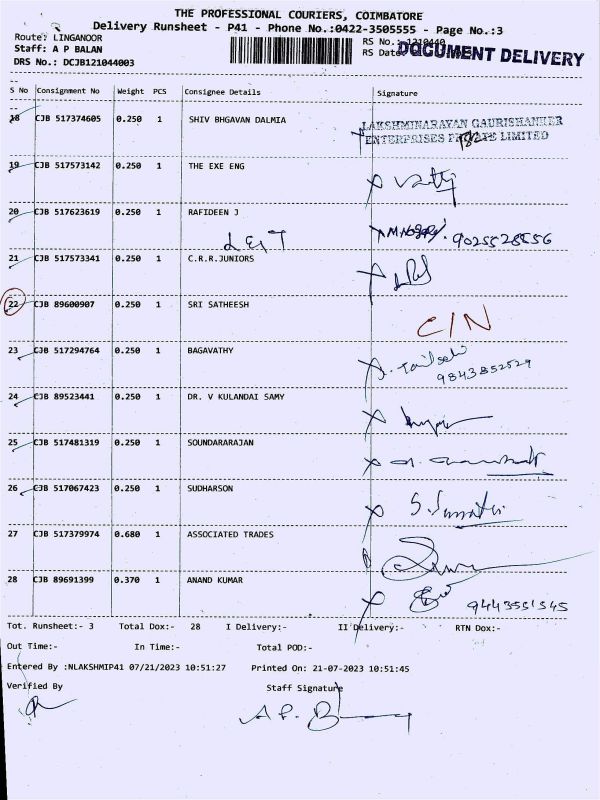 THE PROFESSIONAL COURIERS, COIMBATORE
Delivery Runsheet - P41 - Phone No.:0422-3505555 - Page No.:3
Route: LINGANOOR
RS No.:
Staff: A P BALAN
RS Date:
DOCUMENT DELIVERY
DRS No.: DCJB121044003
S No Consignment No Weight PCS Consignee Details Signature
18 CJB 517374605 0.250 1 SHIV BHGAVAN DALMIA
LAKSHMINARAYAN GAURISHANKER
ENTERPRISES PRIVATE LIMITED
19 CJB 517573142 0.250 1 THE EXE ENG
20 CJB 517623619 0.250 1 RAFIDEEN J
9025528556
21 CJB 517573341 0.250 1 C.R.R.JUNIORS
22 CJB 89600907 0.250 1 SRI SATHEESH
C/N
23 CJB 517294764 0.250 1 BAGAVATHY
9843852529
24 CJB 89523441 0.250 1 DR. V KULANDAI SAMY
25 CJB 517481319 0.250 1 SOUNDARARAJAN
26 CJB 517067423 0.250 1 SUDHARSON
27 CJB 517379974 0.680 1 ASSOCIATED TRADES
28 CJB 89691399 0.370 1 ANAND KUMAR
9443551345
Tot. Runsheet:- 3 Total Dox:- 28 I Delivery:- II Delivery:- RTN Dox:-
Out Time:- In Time:- Total POD:-
Entered By :NLAKSHMIP41 07/21/2023 10:51:27 Printed On: 21-07-2023 10:51:45
Verified By Staff Signature